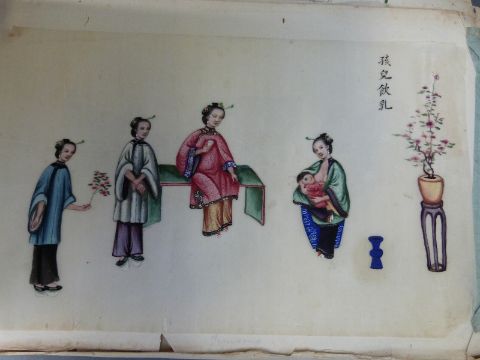 孩兒飲乳